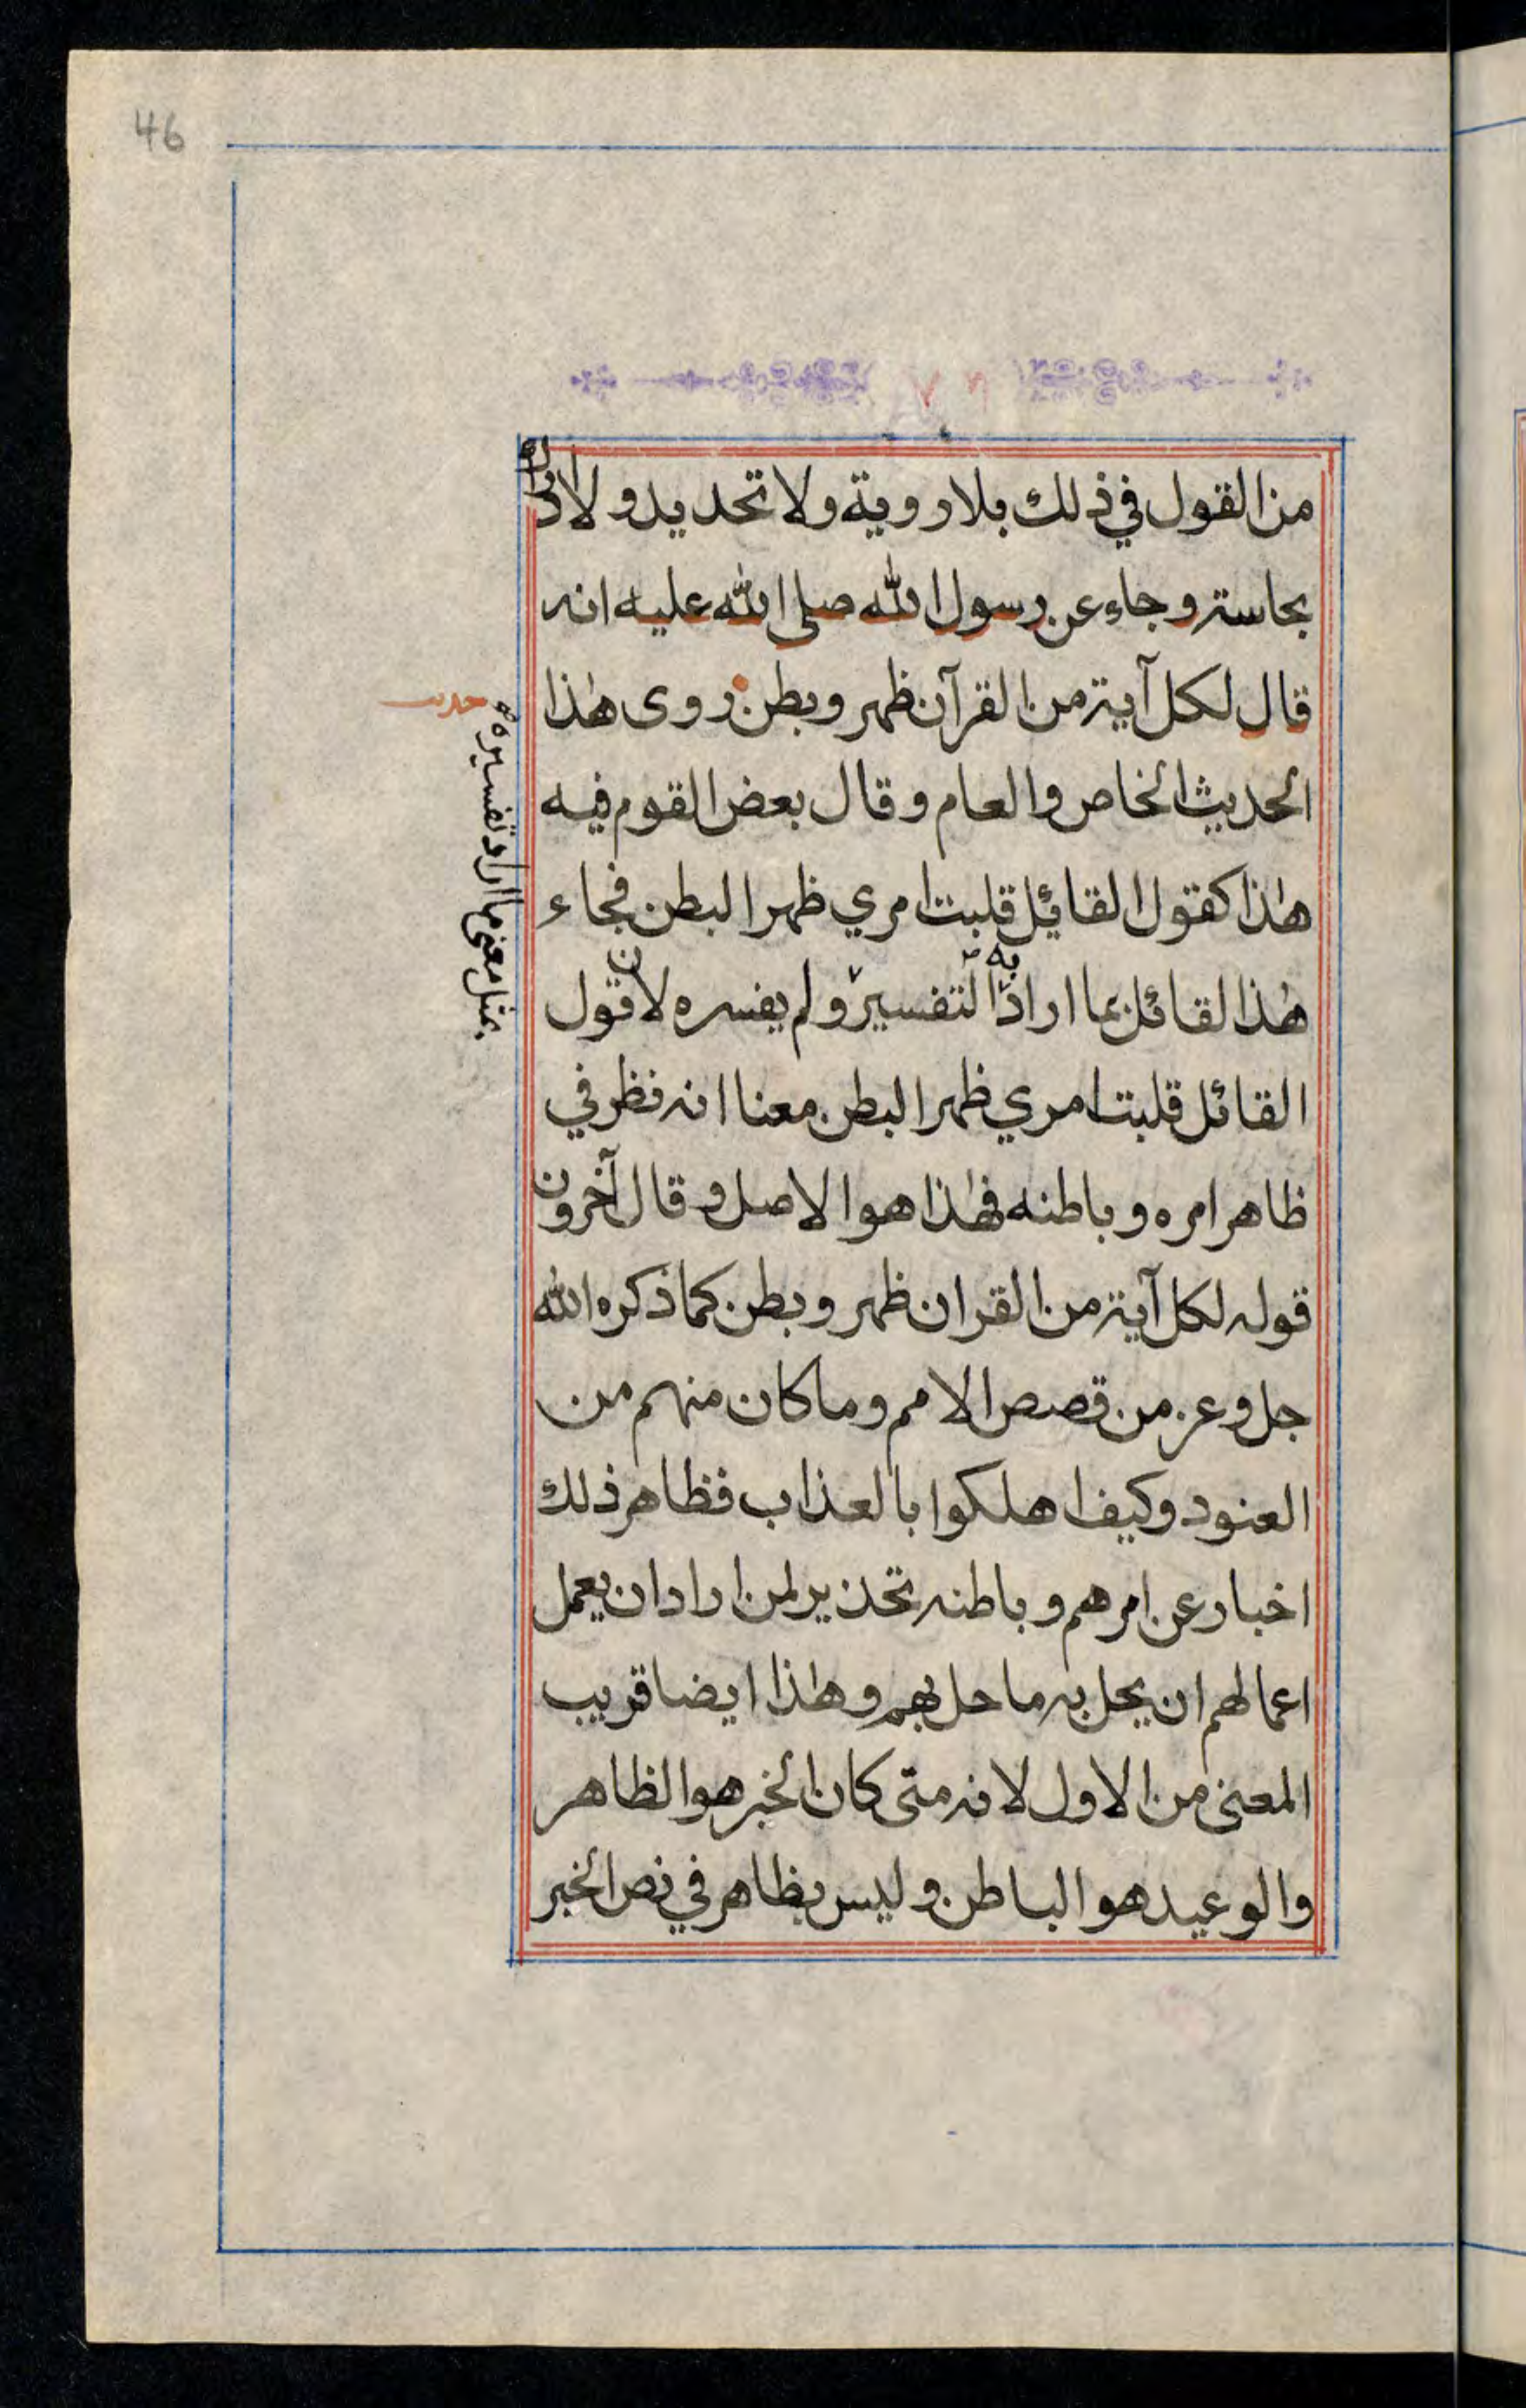 46
٧٦
من القول في ذلك بلا روية ولا تحديد ولا
بحاسة وجاء عن رسول الله صلى الله عليه انه
قال لكل آية من القرآن ظهر وبطن روى هٰذا
حديث
الحديث الخاص والعام وقال بعض القوم فيه
هٰذا كقول القائل قلبت امري ظهرا لبطن فجاء
هٰذا لقائل بما اراد به التفسير ولم يفسره لان قول
بمثل معنى ما اراد تفسيره
القائل قلبت امري ظهرا لبطن معنا انه نظر في
ظاهر امره وباطنه فهٰذا هو الاصل وقال آخرون
قوله لكل آية من القران ظهر وبطن كما ذكره الله
جل وعز من قصص الامم وما كان منهم من
العنود وكيف اهلكوا بالعذاب فظاهر ذلك
اخبار عن امرهم وباطنه تحذير لمن اراد ان يعمل
اعمالهم ان يحل به ما حل بهم وهٰذا ايضا قريب
المعنى من الاول لانه متى كان الخبر هو الظاهر
والوعيد هو الباطن وليس بظاهر في نص الخبر